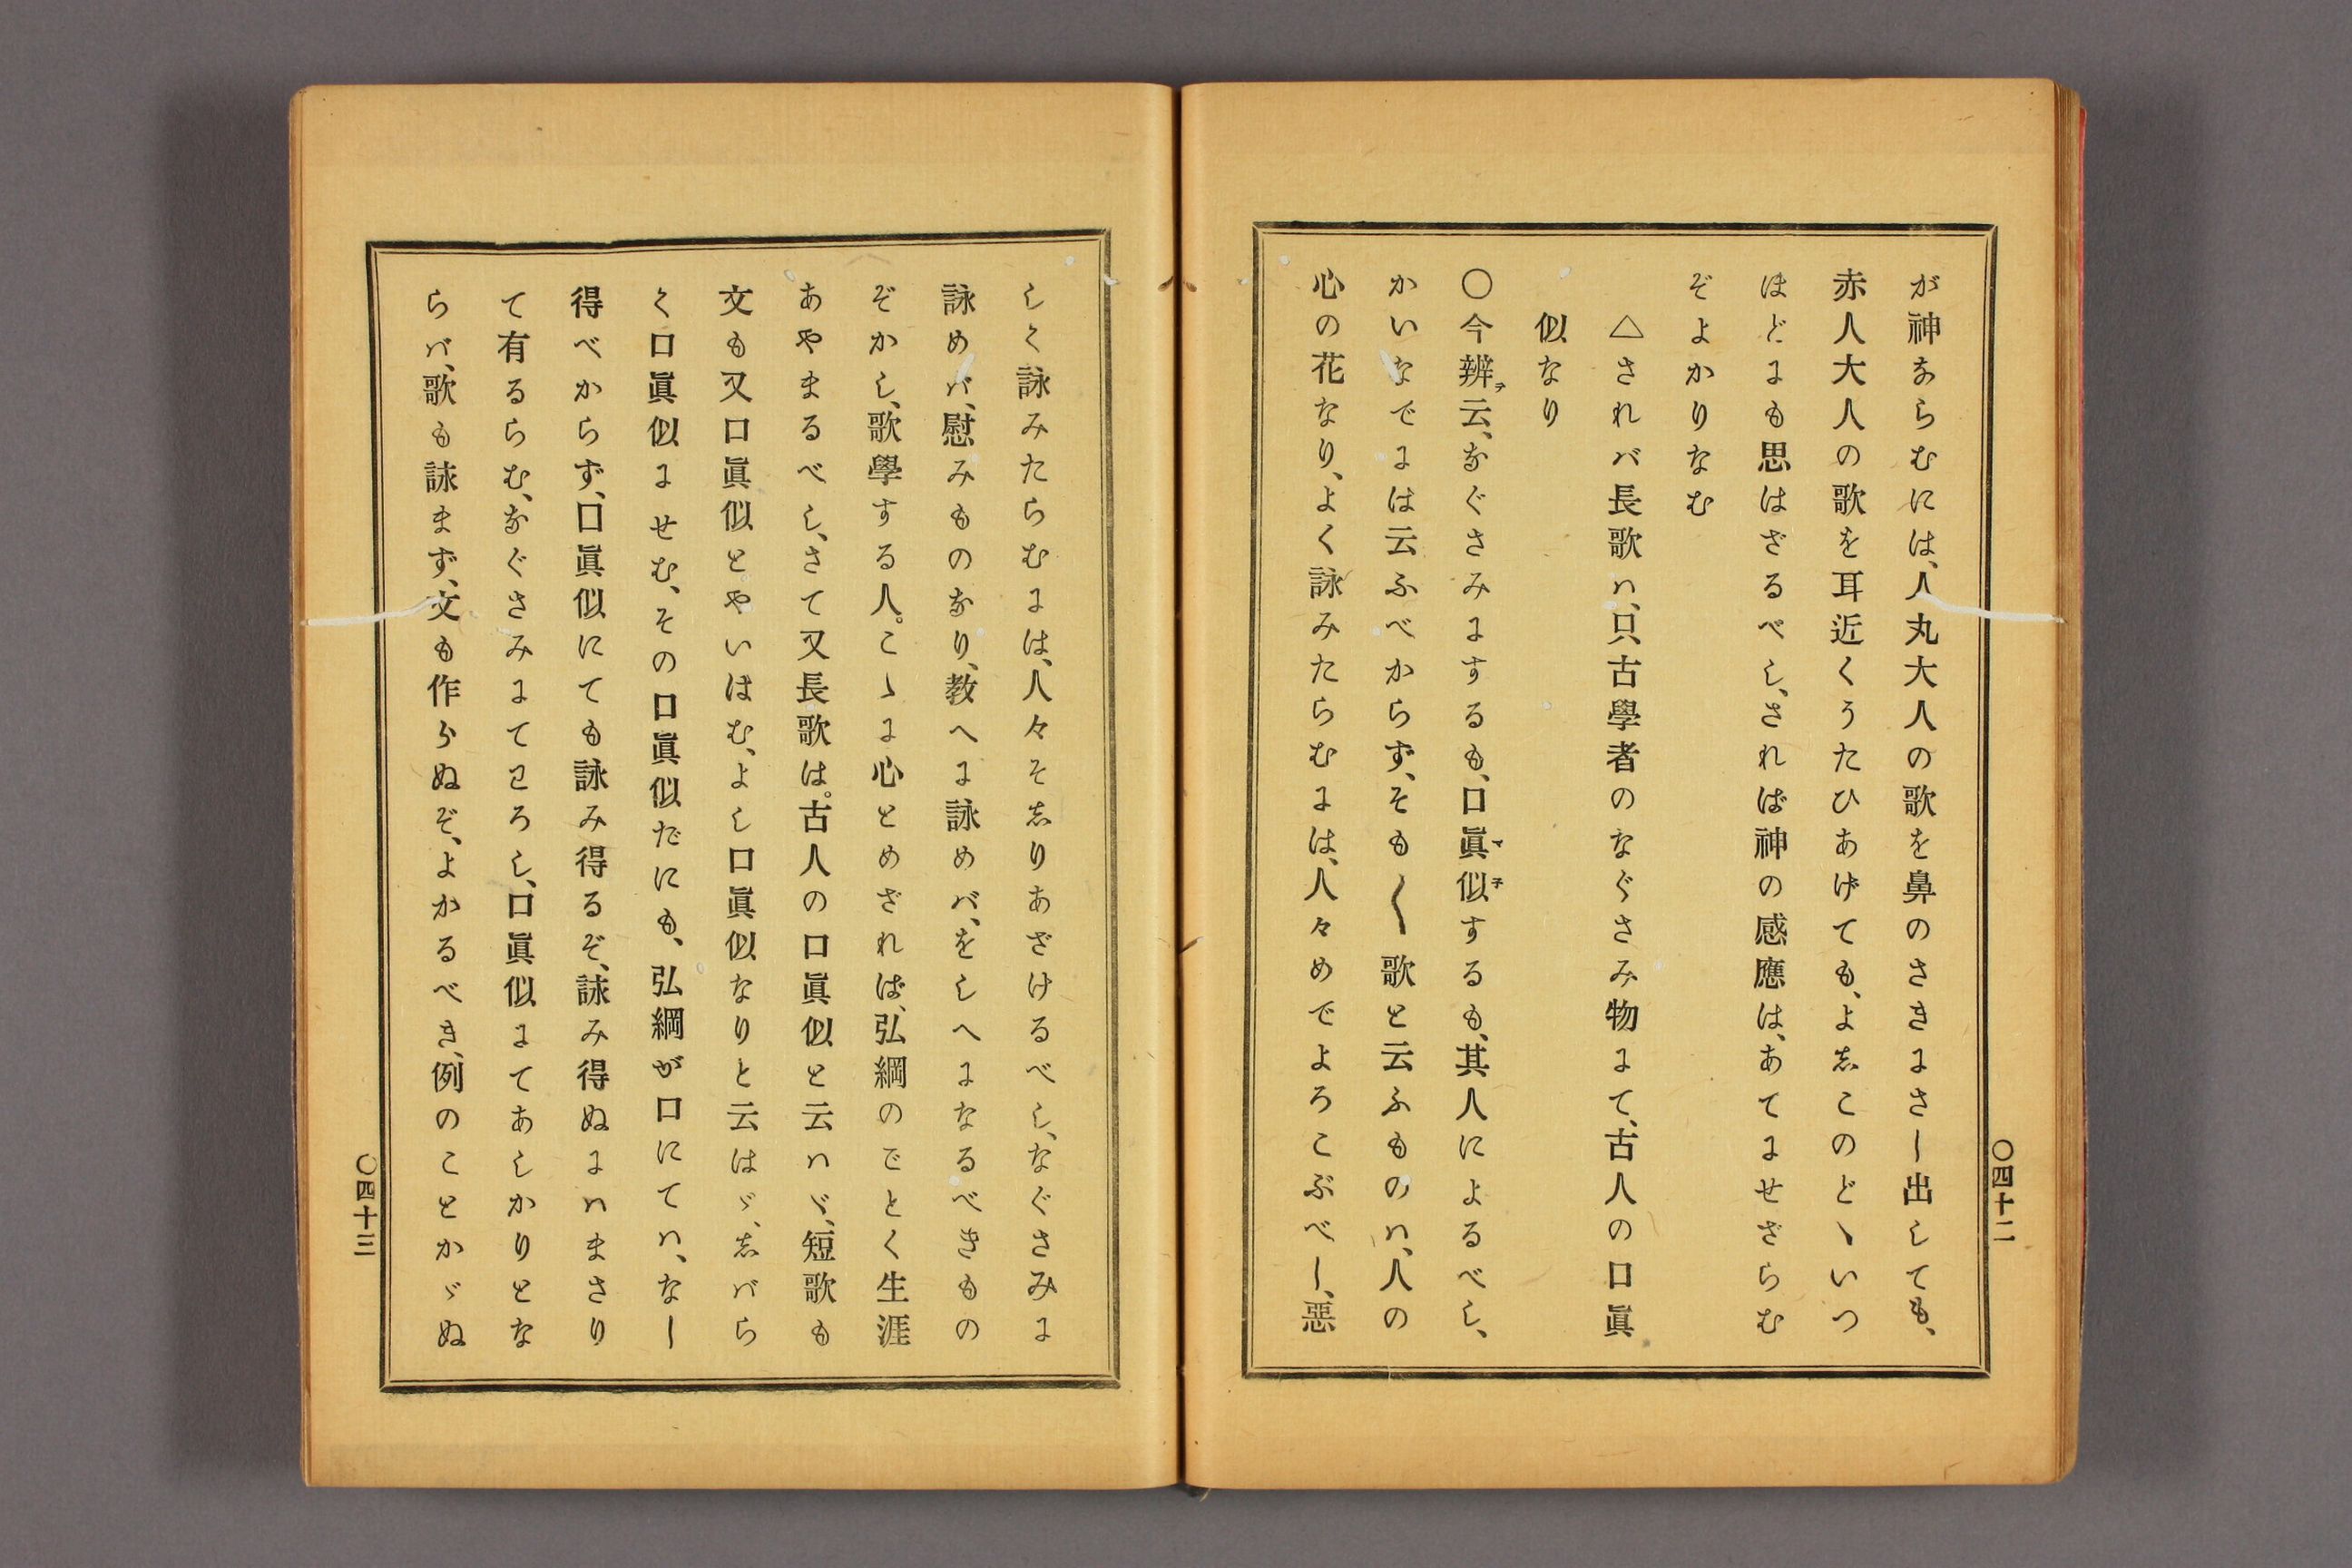 が神ならむには、人丸大人の歌を鼻のさきにさし出しても、
赤人大人の歌を耳近くうたひあげても、よしこのどゝいつ
ほどにも思はざるべし、されば神の感應は、あてにせざらむ
ぞよかりなむ
△されバ長歌ハ、只古學者のなぐさみ物にて、古人の口眞
似なり
○今辨ヲ云、なぐさみにするも、口眞マ似子するも、其人によるべし、
かいなでには云ふべからず、そも〱歌と云ふものハ、人の
心の花なり、よく詠みたらむには、人々めでよろこぶべし、惡
○四十二
しく詠みたらむには、人々そしりあざけるべし、なぐさみに
詠めバ、慰みものなり、教へに詠めバ、をしへになるべきもの
ぞかし、歌學する人。こゝに心とめざれば、弘綱のごとく生涯
あやまるべし、さて又長歌は。古人の口眞似と云ハヾ、短歌も
文も又口眞似とやいはむ、よし口眞似なりと云はゞ、しバら
く口眞似にせむ、その口眞似だにも、弘綱が口にてハ、なし
得べからず、口眞似にても詠み得るぞ、詠み得ぬにハまさり
て有るらむ、なぐさみにてわろし、口眞似にてあしかりとな
らバ、歌も詠まず、文も作らぬぞ、よかるべき、例のことかゞぬ
○四十三